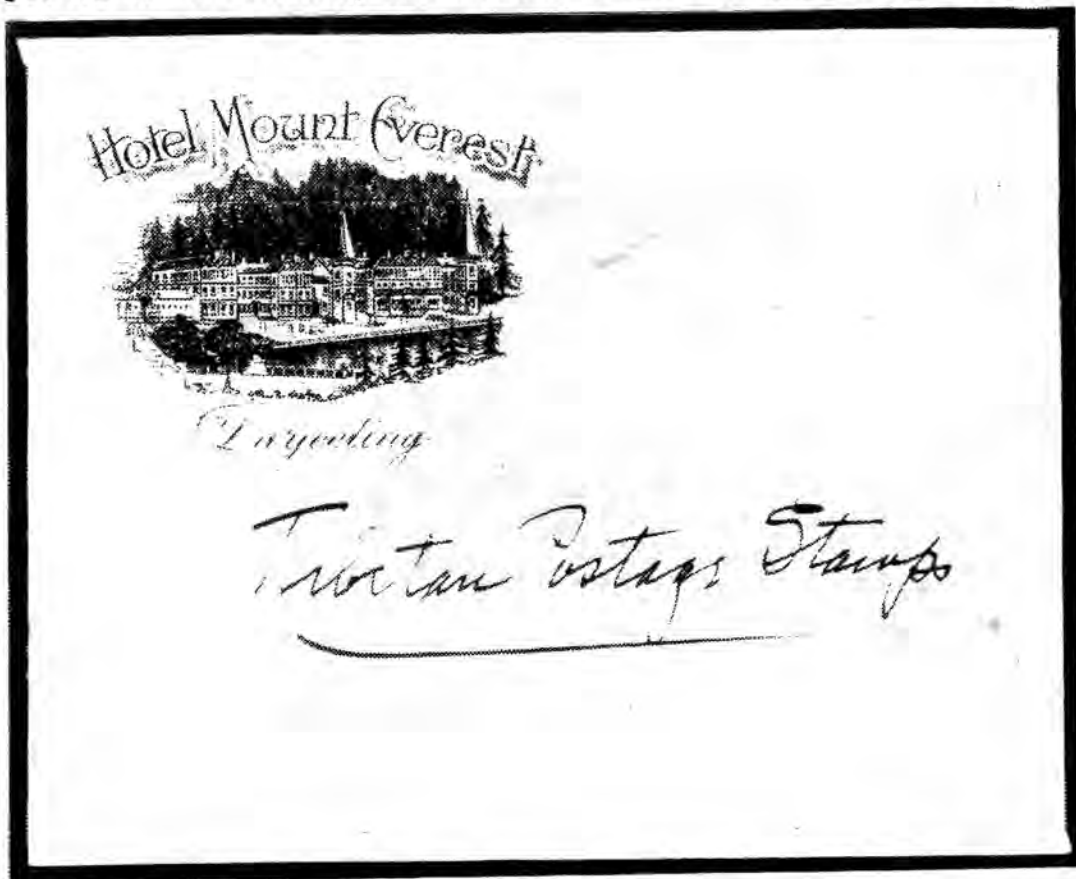 Hotel Mount Everest
Darjeeling
Tibetan Postage Stamps